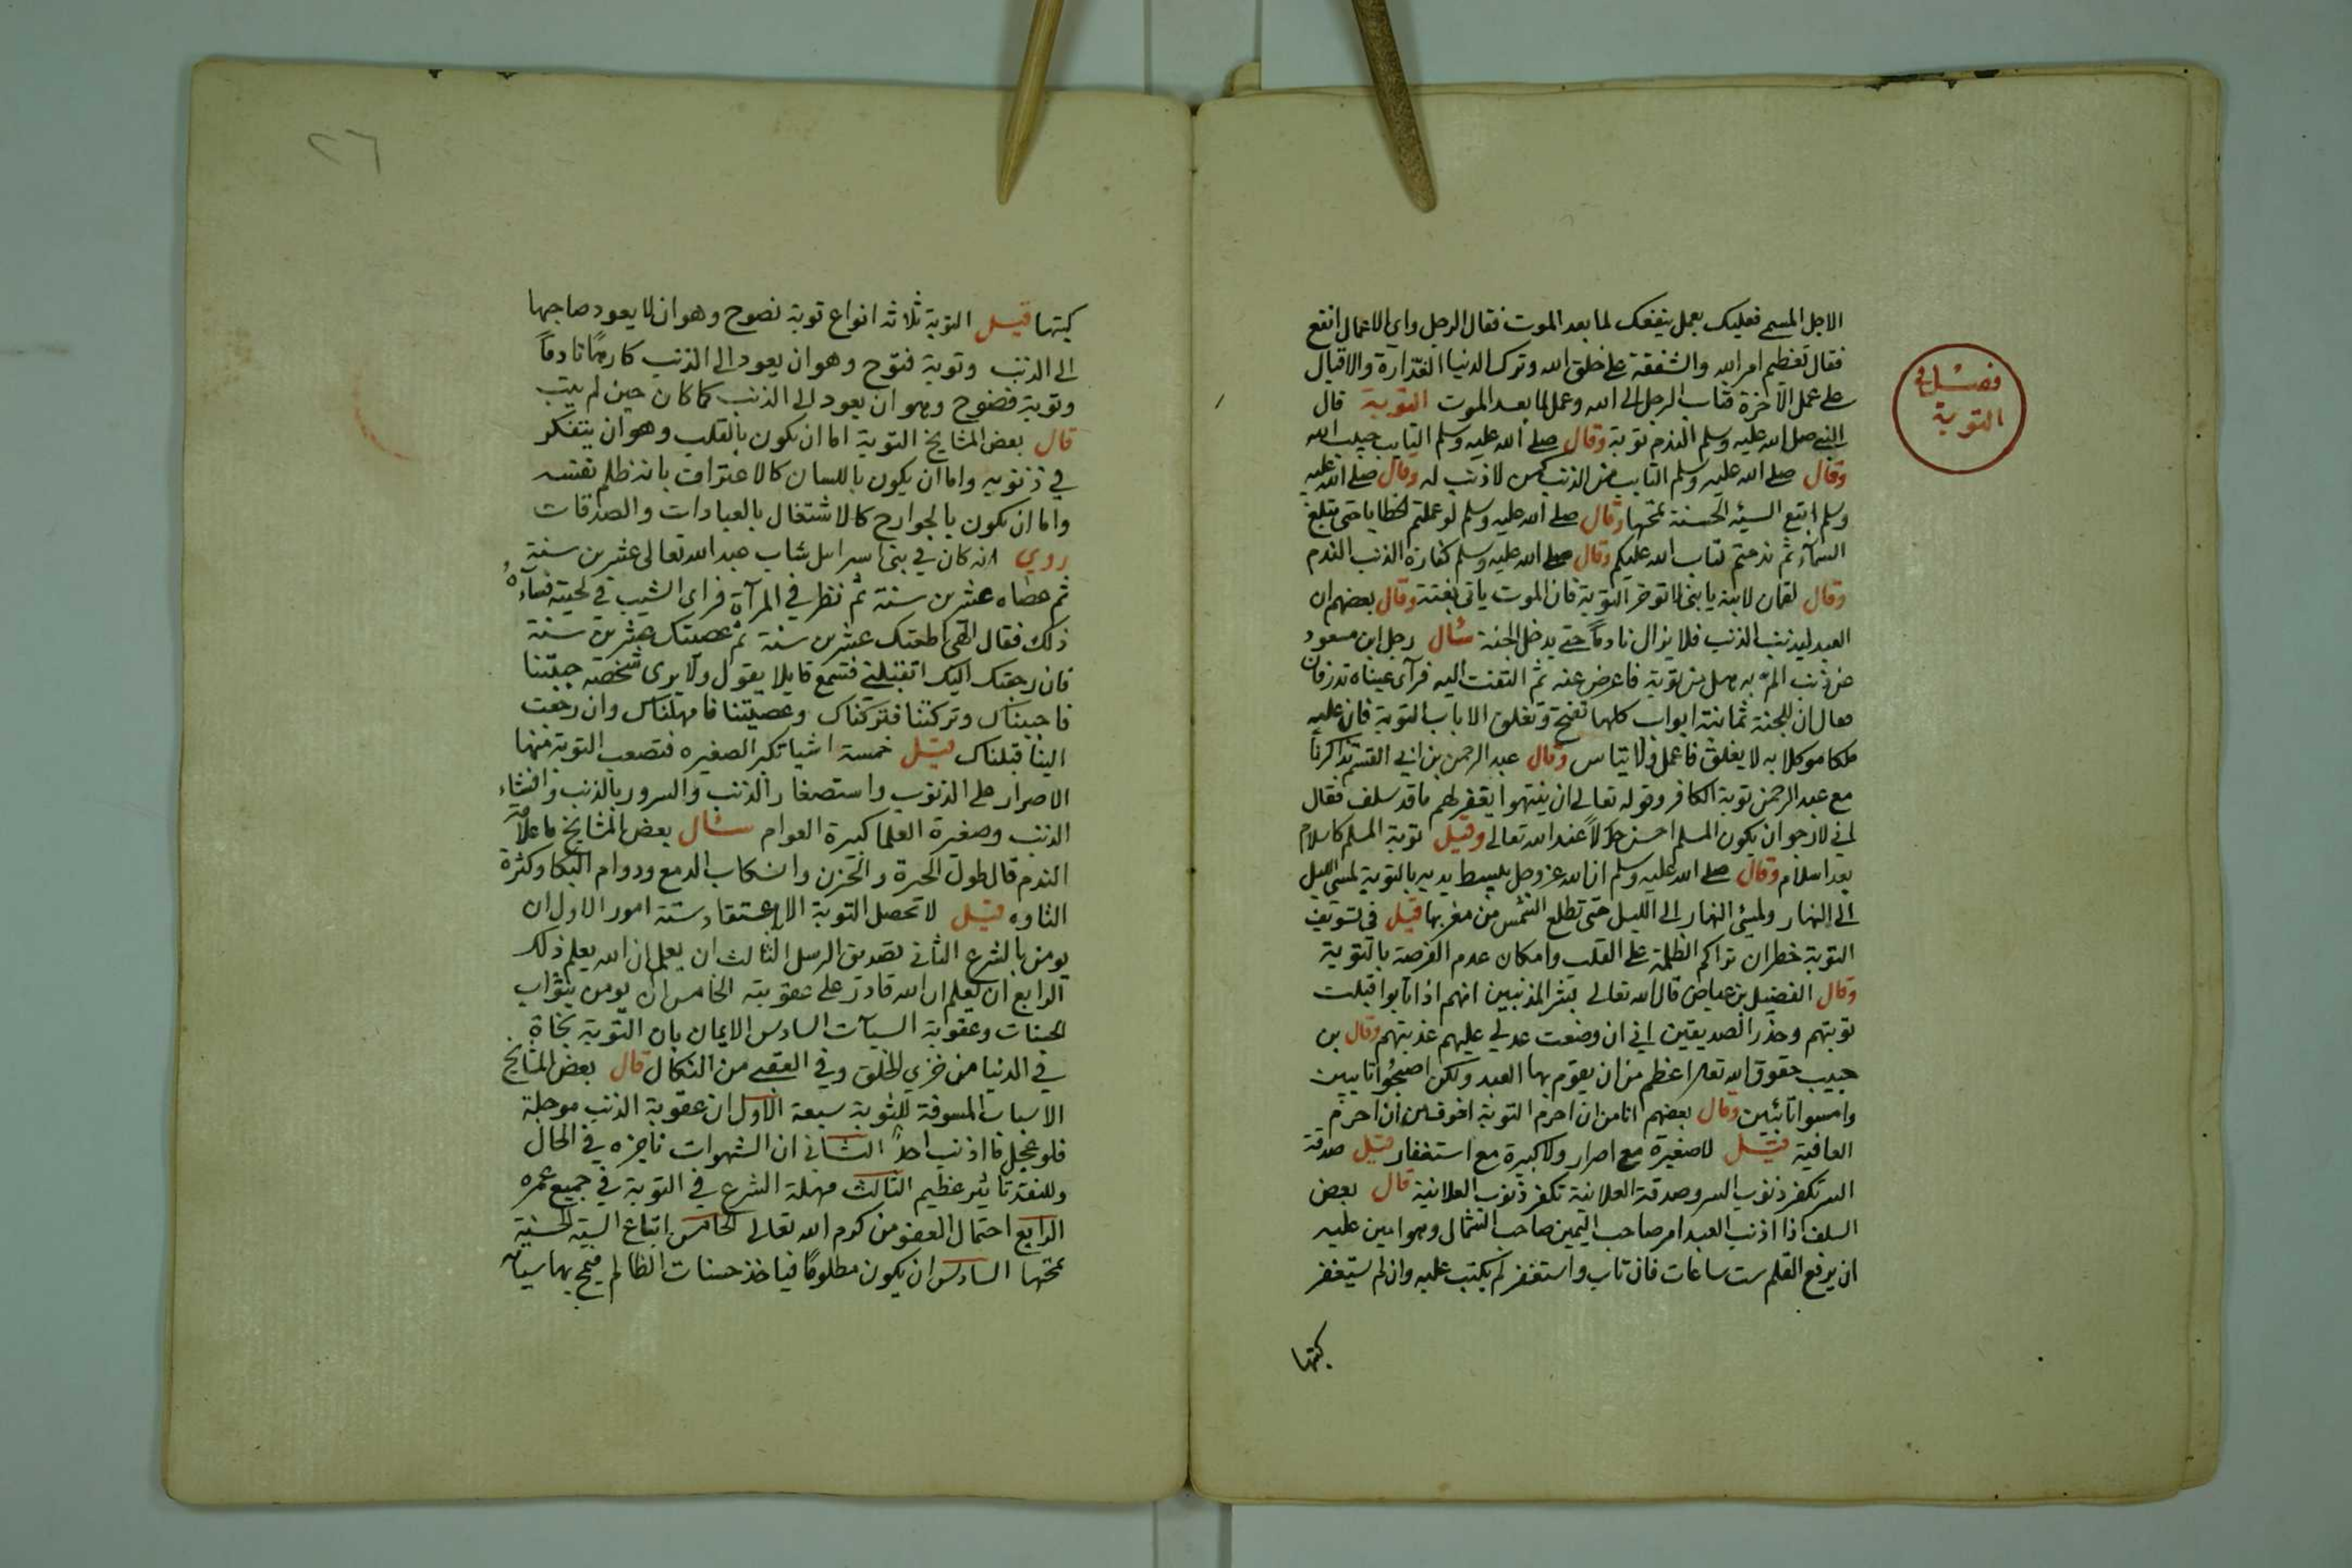 فصل في
التوبة
الاجل المسمى فعليك بعمل ينفعك لما بعد الموت فقال الرجل واي الاعمال انفع
فقال تعظيم امر الله والشفقة على خلق الله وترك الدنيا الغدّارة والاقبال
على عمل الآخرة فتاب الرجل الى الله وعمل لما بعد الموت التوبة قال
النبي صلى الله عليه وسلم الندم توبة وقال صلى الله عليه وسلم التايب حبيب الله
وقال صلى الله عليه وسلم التايب من الذنب كمن لا ذنب له وقال صلى الله عليه
وسلم اتبع السيئه الحسنة تمحها وقال صلى الله عليه وسلم لو عملتم الخطايا حتى تبلغ
السمآء ثم ندمتم لتاب الله عليكم وقال صلى الله عليه وسلم كفارة الذنب الندم
وقال لقمان لابنه يا بني لا توخر التوبة فان الموت ياتي بغتة وقال بعضهم ان
العبد ليذنب الذنب فلا يزال نادماً حتى يدخل الجنة سئال رجل ابن مسعود
عن ذنب المّ به هل من توبة فاعرض عنه ثم التفت اليه فرآى عيناه تدرفان
فقال ان للجنة ثمانية ابواب كلها تفتح وتغلق الا باب التوبة فان عليه
ملكا موكلا به لا يغلق فاعمل ولا تياس وقال عبد الرحمن بن ابي القسم تذاكرنا
مع عبد الرحمن توبة الكافر وقوله تعالى ان ينتهوا يغفر لهم ما قد سلف فقال
اني لارجو ان يكون المسلم احسن حالاً عند الله تعالى وقيل توبة المسلم كاسلام
بعد اسلام وقال صلى الله عليه وسلم ان الله عز وجل يبسط يديه بالتوبة لمسي الليل
الى النهار ولمسئ النهار الى الليل حتى تطلع الشمس من مغربها قيل في تسويف
التوبة خطران تراكم الظلمة على القلب وامكان عدم الفرصة بالتوبة
وقال الفضيل بن عياض قال الله تعالى بشر المذنبين انهم اذا تابوا قبلت
توبتهم وحذّر الصديقين اني ان وضعت عدلي عليهم عذبتهم وقال بن
حبيب حقوق الله تعالى اعظم من ان يقوم بها العبد ولكن اصبحُوا تايبين
وامسوا تائبين وقال بعضهم انا من ان احرم التوبة اخوف من ان احرم
العافية قيل لا صغيرة مع اصرار ولا كبيرة مع استغفار قيل صدقة
السر تكفر ذنوب السر وصدقة العلانية تكفر ذنوب العلانية قال بعض
السلف اذا اذنب العبد امر صاحب اليمين صاحب الشمال وهو امين عليه
ان يرفع القلم ست ساعات فان تاب واستغفر لم يكتب عليه وان لم يستغفر
كتبها
٢٦
كتبها قيل التوبة ثلاثه انواع توبة نصوح وهو ان لا يعود صاحبها
الى الذنب وتوبة فتوح وهو ان يعود الى الذنب كارهًا نادماً
وتوبة فضوح وهو ان يعود الى الذنب كما كان حين لم يتب
قال بعض المشايخ التوبة اما ان تكون بالقلب وهو ان يتفكر
في ذنوبه واما ان يكون باللسان كالاعتراف بانه ظلم نفسه
واما ان تكون بالجوارح كالاشتغال بالعبادات والصدقات
روي انه كان في بني اسرايل شاب عبد الله تعالى عشرين سنة
ثم عصاه عشرين سنة ثم نظر في المرآة فراى الشيب في لحيته فسآءهُ
ذلك فقال الهي اطعتك عشرين سنة ثم عصيتك عشرين سنة
فان رجعت اليك اتقبلني فسمع قايلا يقول ولا يرى شخصه جيتنا
فاجبناك وتركتنا فتركناك وعصيتنا فامهلناك وان رجعت
الينا قبلناك قيل خمسة اشيا تكبر الصغيره فتصعب التوبة منها
الاصرار على الذنوب واستصغار الذنب والسرور بالذنب وافشاء
الذنب وصغيرة العلما كبيرة العوام سئال بعض المشايخ ما علامة
الندم قال طول الحسرة والحزن وانسكاب الدمع ودوام البكا وكثرة
التاوه قيل لا تحصل التوبة الا باعتقاد ستة امور الاول ان
يومن بالشرع الثاني تصديق الرسل الثالث ان يعلم ان الله يعلم ذلك
الرابع ان يعلم ان الله قادر على عقوبته الخامس ان يومن بثواب
الحسنات وعقوبة السيآت السادس الايمان بان التوبة نجاة
في الدنيا من خزي الخلق وفي العقبى من النكال قال بعض المشايخ
الاسباب المسوفة للتوبة سبعة الاول ان عقوبة الذنب موجلة
فلو عجل ما اذنب احدٌ الثاني ان الشهوات ناجزه في الحال
وللنقد تاثير عظيم الثالث مهلة الشرع في التوبة في جميع عمره
الرابع احتمال العفو من كرم الله تعالى الخامس اتباع السيه الحسنة
تمحها السادس ان يكون مظلومًا فياخذ حسنات الظالم فيمح بها سياته